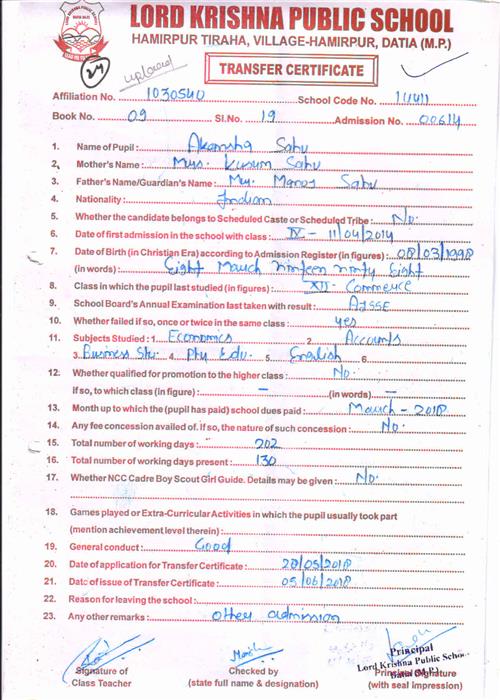 LORD KRISHNA PUBLIC SCHOOL
HAMIRPUR TIRAHA, VILLAGE-HAMIRPUR, DATIA (M.P.)
24
uploaded
TRANSFER CERTIFICATE
Affiliation No. 1030540 School Code No. 14411
Book No. 09 Sl.No. 19 Admission No. 00614
1. Name of Pupil : Akansha Sahu
2. Mother's Name : Mrs. Kusum Sahu
3. Father's Name/Guardian's Name : Mr. Manoj Sahu
4. Nationality : Indian
5. Whether the candidate belongs to Scheduled Caste or Scheduled Tribe : No.
6. Date of first admission in the school with class : IV - 11/04/2014
7. Date of Birth (in Christian Era) according to Admission Register (in figures) : 08/03/1998
(in words) : Eight March Ninteen Ninty Eight
8. Class in which the pupil last studied (in figures) : XII - Commerce
9. School Board's Annual Examination last taken with result : AISSE
10. Whether failed if so, once or twice in the same class : yes
11. Subjects Studied : 1. Economics 2. Accounts
3. Business Stu. 4. Phy Edu. 5. English 6.
12. Whether qualified for promotion to the higher class : No.
if so, to which class (in figure) : – (in words) –
13. Month up to which the (pupil has paid) school dues paid : March - 2018
14. Any fee concession availed of. if so, the nature of such concession : No.
15. Total number of working days : 202
16. Total number of working days present : 130
17. Whether NCC Cadre Boy Scout Girl Guide. Details may be given : No.
18. Games played or Extra-Curricular Activities in which the pupil usually took part
(mention achievement level therein) :
19. General conduct : Good
20. Date of application for Transfer Certificate : 28/05/2018
21. Date of issue of Transfer Certificate : 05/06/2018
22. Reason for leaving the school :
23. Any other remarks : other admission
Principal
Lord Krishna Public School
Datia (M.P.)
Signature of Class Teacher
Checked by (state full name & designation)
Principal Signature (with seal impression)